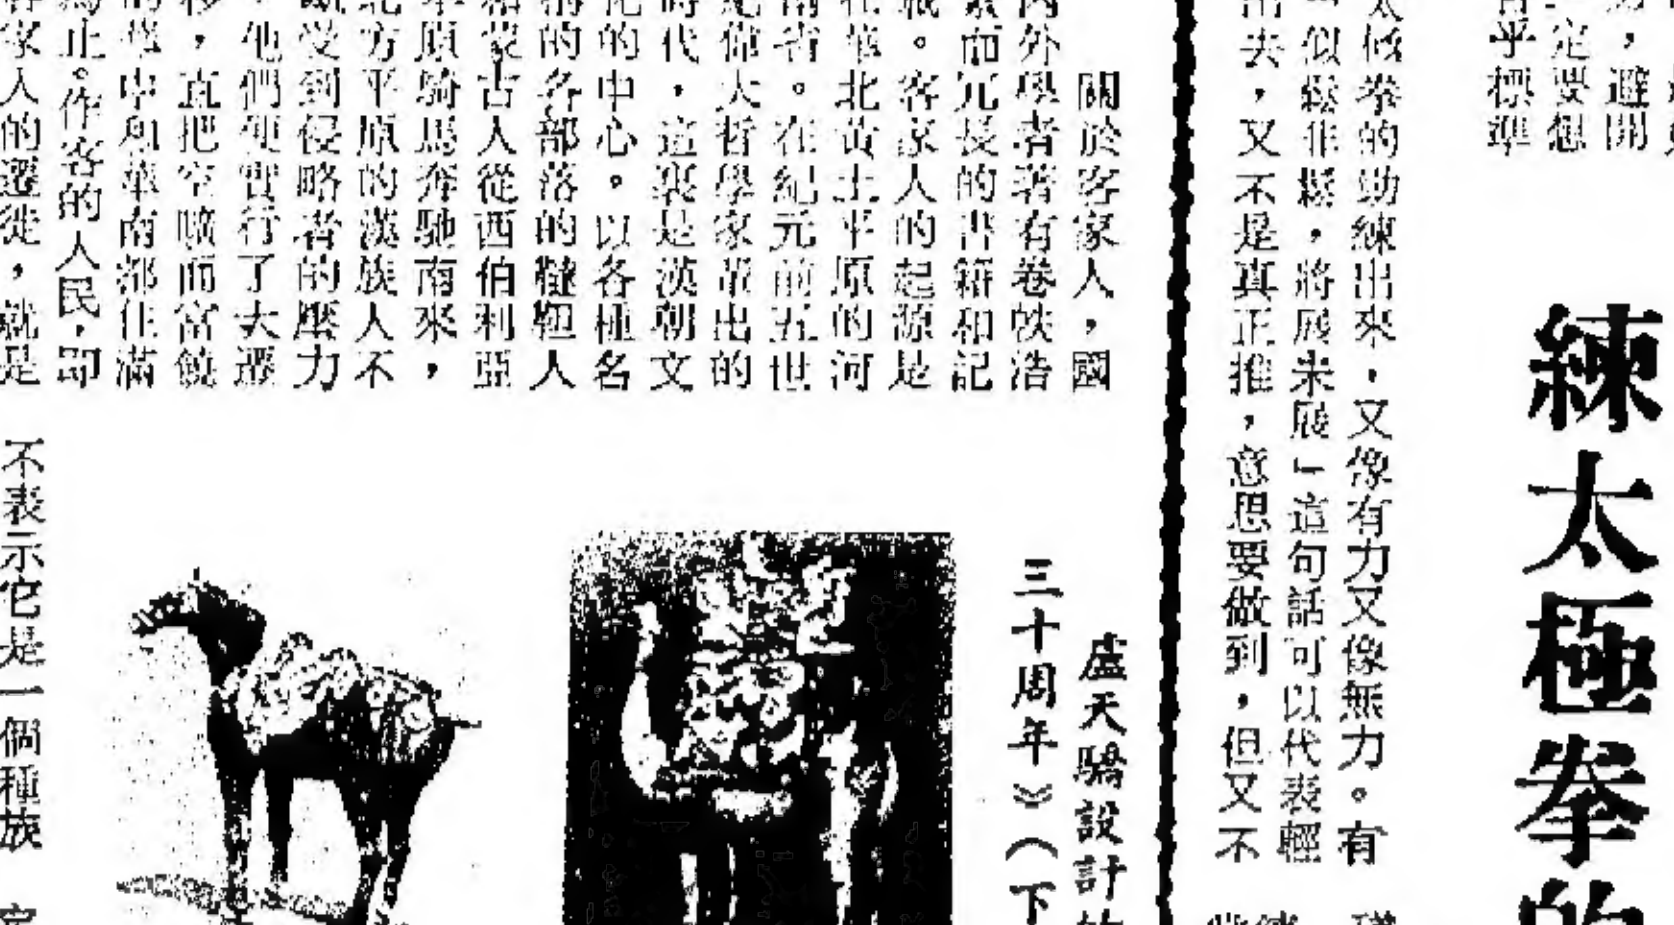 ，避開
定要想
乎標準
練太極拳的
太極拳的勁練出來，又像有力又像無力。有
「似鬆非鬆，將展未展」這句話可以代表輕
出去，又不是真正推，意思要做到，但又不
關於客家人，國
內外學者著有卷帙浩
繁而冗長的書籍和記
載。客家人的起源是
在華北黃土平原的河
南省。在紀元前五世
紀偉大哲學家輩出的
時代，這裏是漢朝文
化的中心。以各種名
稱的各部落的韃靼人
和蒙古人從西伯利亞
草原騎馬奔馳南來，
北方平原的漢族人不
斷受到侵略者的壓力
，他們便實行了大遷
移，直把空曠而富饒
的華中和華南都住滿
為止。作客的人民，即
客家人的遷徙，就是
盧天驕設計的
三十周年》（下
不表示它是一個種族